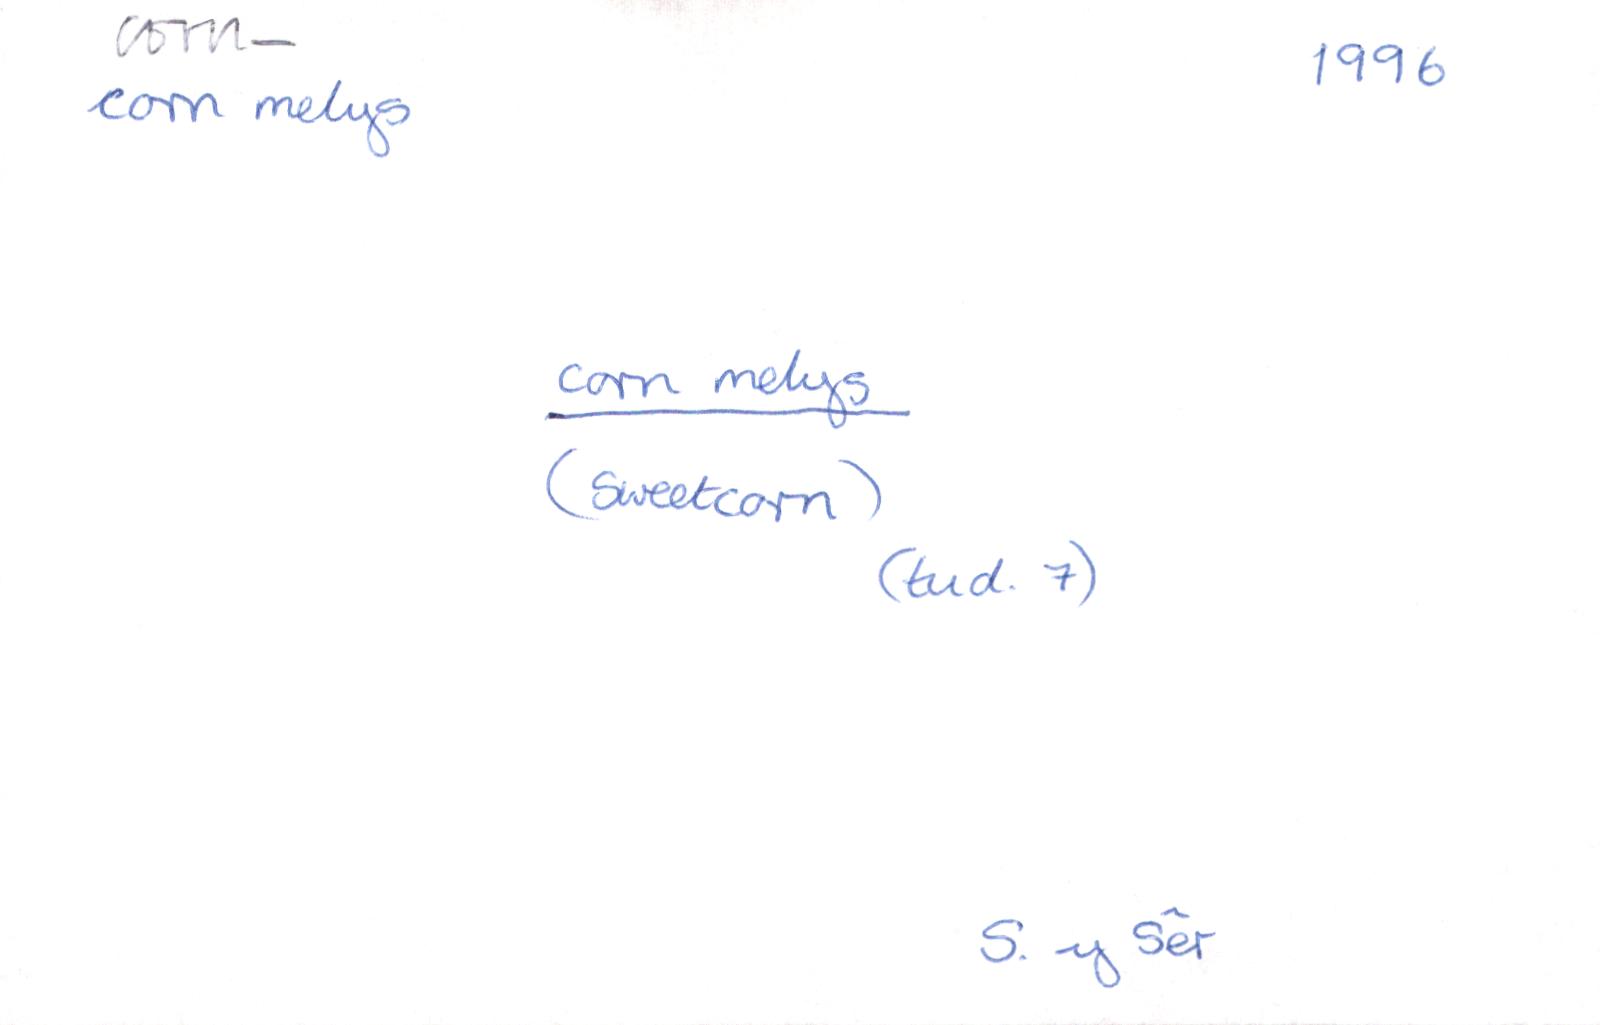 corn–
corn melys
1996
corn melys
(sweetcorn)
(tud. 7)
S. y Sêr